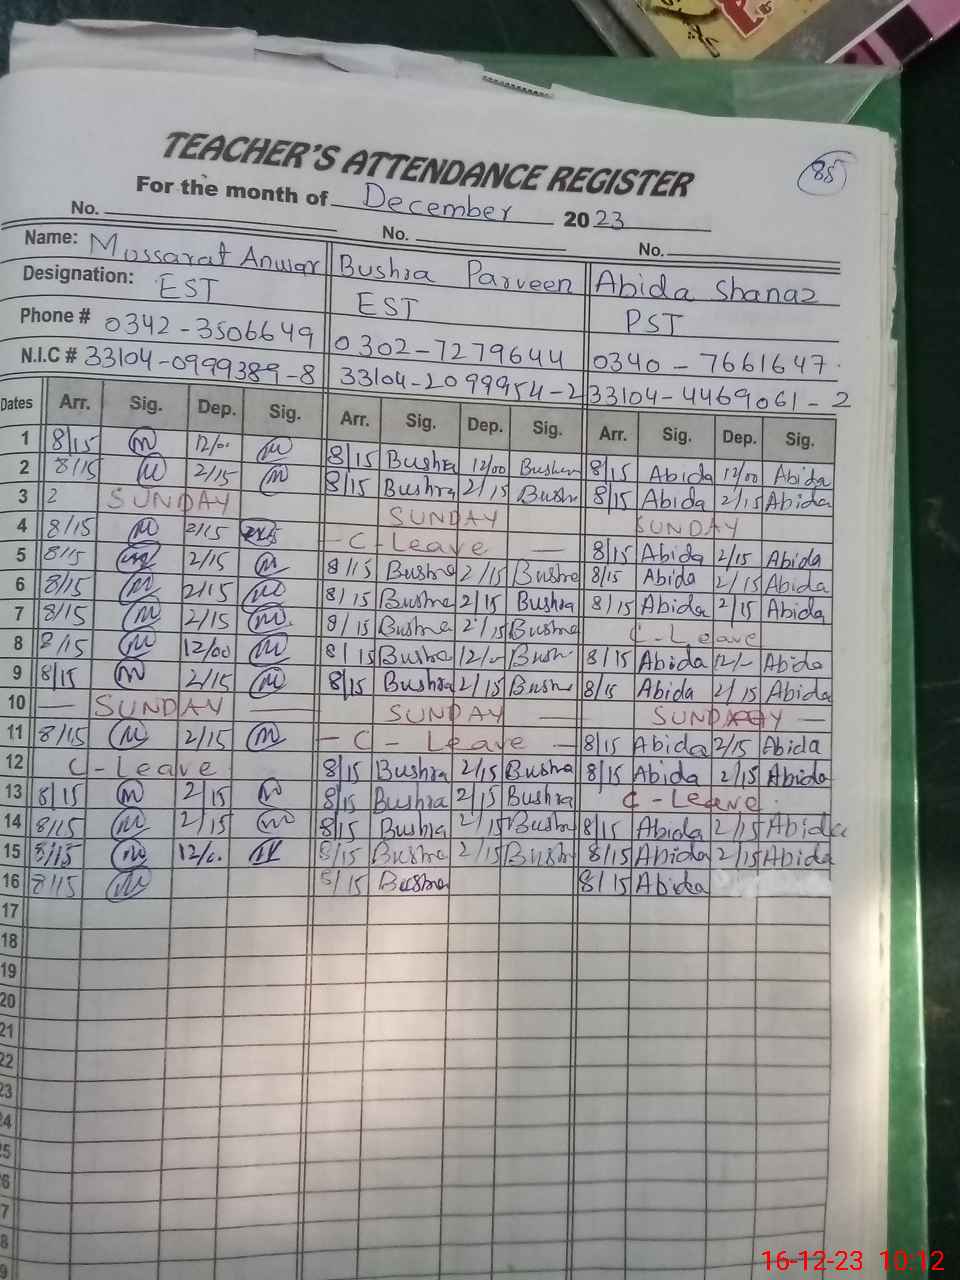 TEACHER'S ATTENDANCE REGISTER
85
For the month of December 2023
No. No. No.
Name: Mussarat Anwar Bushra Parveen Abida Shanaz
Designation: EST EST PST
Phone # 0342-3506649 0302-7279644 0340-7661647
N.I.C # 33104-0999389-8 33104-2099954-2 33104-4469061-2
Dates Arr. Sig. Dep. Sig. Arr. Sig. Dep. Sig. Arr. Sig. Dep. Sig.
1 8/15 M 12/00 M 8/15 Bushra 12/00 Bushra 8/15 Abida 12/00 Abida
2 8/15 M 2/15 M 8/15 Bushra 2/15 Bushr 8/15 Abida 2/15 Abida
3 2 SUNDAY SUNDAY SUNDAY
4 8/15 M 2/15 - C - Leave - 8/15 Abida 2/15 Abida
5 8/15 2/15 M 8/15 Bushra 2/15 Bushra 8/15 Abida 2/15 Abida
6 8/15 M 2/15 M 8/15 Bushra 2/15 Bushra 8/15 Abida 2/15 Abida
7 8/15 M 2/15 M 8/15 Bushra 2/15 Bushra C - Leave
8 8/15 M 12/00 M 8/15 Bushra 12/- Bush. 8/15 Abida 12/- Abida
9 8/15 M 2/15 M 8/15 Bushra 2/15 Bushra 8/15 Abida 2/15 Abida
10 - SUNDAY - SUNDAY - SUNDAY -
11 8/15 M 2/15 M - C - Leave - 8/15 Abida 2/15 Abida
12 C - Leave 8/15 Bushra 2/15 Bushra 8/15 Abida 2/15 Abida
13 8/15 M 2/15 M 8/15 Bushra 2/15 Bushra C - Leave
14 8/15 M 2/15 M 8/15 Bushra 2/15 Bushra 8/15 Abida 2/15 Abida
15 8/15 M 12/0. 8/15 Bushra 2/15 Bushr 8/15 Abida 2/15 Abida
16 8/15 M 8/15 Bushra 8/15 Abida
17
18
19
20
21
22
23
24
25
26
7
8
9
16-12-23 10:12